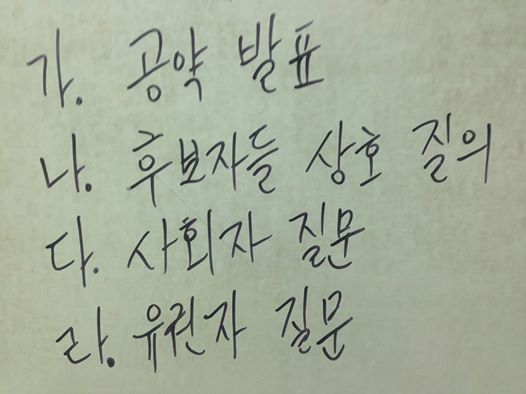 가. 공약 발표
나. 후보자들 상호 질의
다. 사회자 질문
라. 유권자 질문